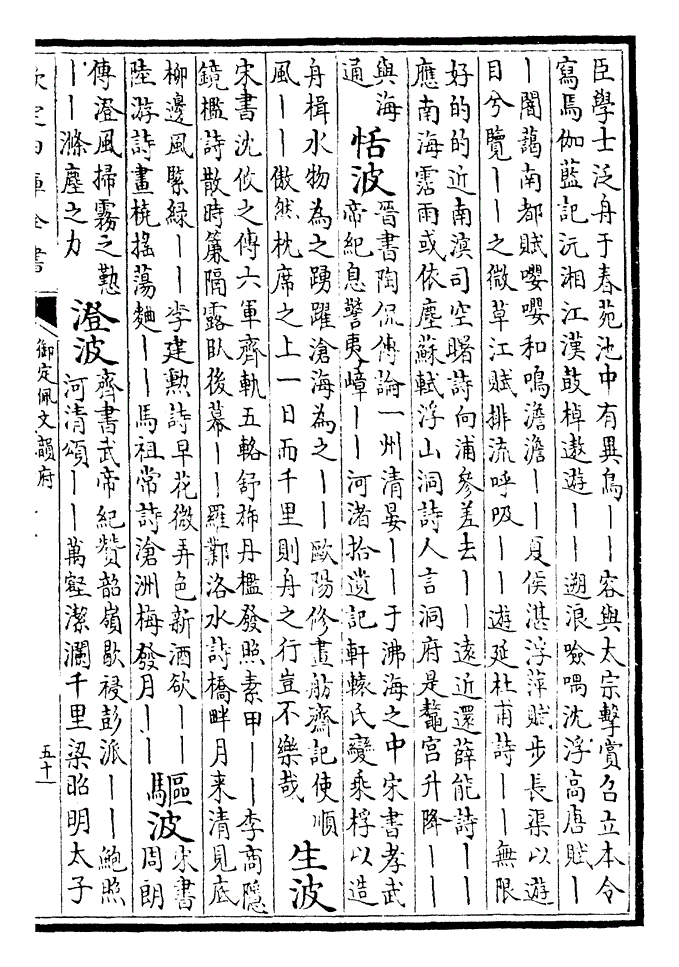 臣學士泛舟于春苑池中有異鳥丨丨容與太宗擊賞召立本令
寫焉伽藍記沅湘江漢鼓棹遨遊丨丨遡浪噞喁沈浮高唐賦丨
丨闇藹南都賦嚶嚶和鳴澹澹丨丨夏侯湛浮萍賦步長渠以遊
目兮覽丨丨之微草江賦排流呼吸丨丨遊延杜甫詩丨丨無限
好的的近南溟司空曙詩向浦參差去丨丨遠近還薛能詩丨丨
應南海霑雨或依塵蘇軾浮山洞詩人言洞府是鼇宮升降丨丨
與海
通
恬波
晉書陶侃傳論一州清晏丨丨于沸海之中宋書孝武
帝紀息警夷嶂丨丨河渚拾遺記軒轅氏變乘桴以造
舟楫水物為之踴躍滄海為之丨丨歐陽修畫舫齋記使順
風丨丨傲然枕席之上一日而千里則舟之行豈不樂哉
生波
宋書沈攸之傳六軍齊軌五輅舒斾丹檻發照素甲丨丨李商隱
鏡檻詩散時簾隔露臥後幕丨丨羅鄴洛水詩橋畔月来清見底
柳邊風緊綠丨丨李建勲詩早花微弄色新酒欲丨丨
陸游詩畫橈搖蕩麯丨丨馬祖常詩滄洲梅發月丨丨
驅波
宋書
周朗
傳澄風掃霧之懃
丨丨滌塵之力
澄波
齊書武帝紀贊韶嶺歇祲彭派丨丨鮑照
河清頌丨丨萬壑潔瀾千里梁昭明太子
欽定四庫全書
御定佩文韻府
五十一